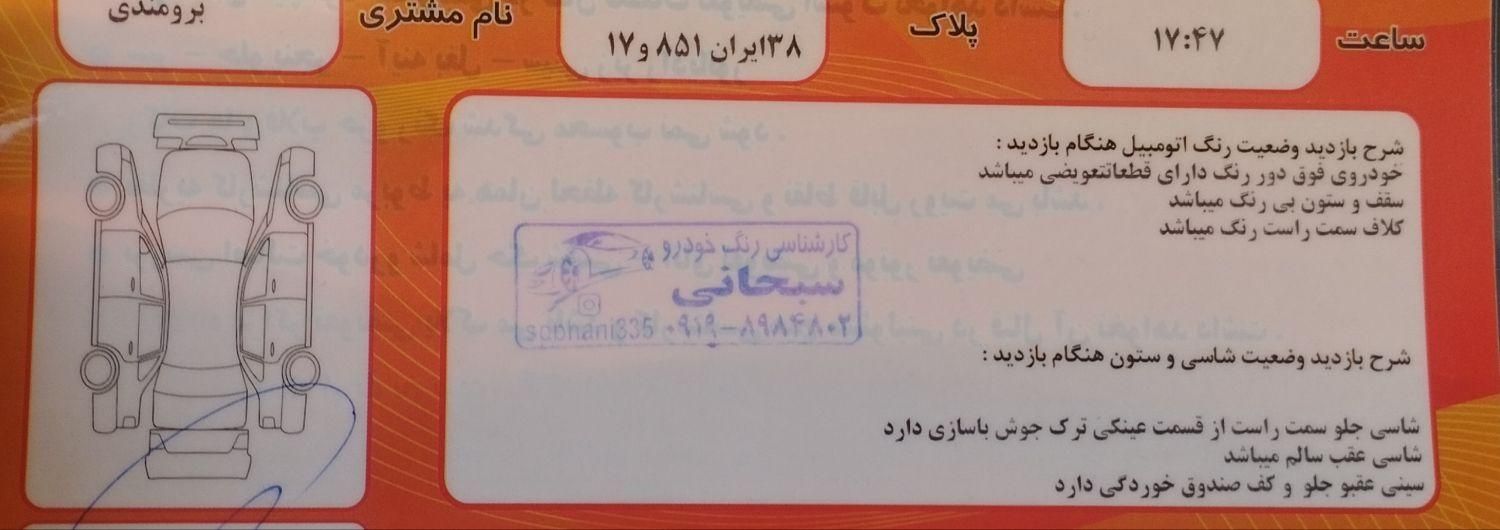 ساعت ۱۷:۴۷ پلاک ۳۸ایران ۸۵۱ و۱۷ نام مشتری برومندی
شرح بازدید وضعیت رنگ اتومبیل هنگام بازدید :
خودروی فوق دور رنگ دارای قطعاتتعویضی میباشد
سقف و ستون بی رنگ میباشد
کلاف سمت راست رنگ میباشد
کارشناسی رنگ خودرو
سبحانی
sobhani335 ۰۹۱۹-۸۹۸۴۸۰۲
شرح بازدید وضعیت شاسی و ستون هنگام بازدید :
شاسی جلو سمت راست از قسمت عینکی ترک جوش باسازی دارد
شاسی عقب سالم میباشد
سینی عقبو جلو و کف صندوق خوردگی دارد